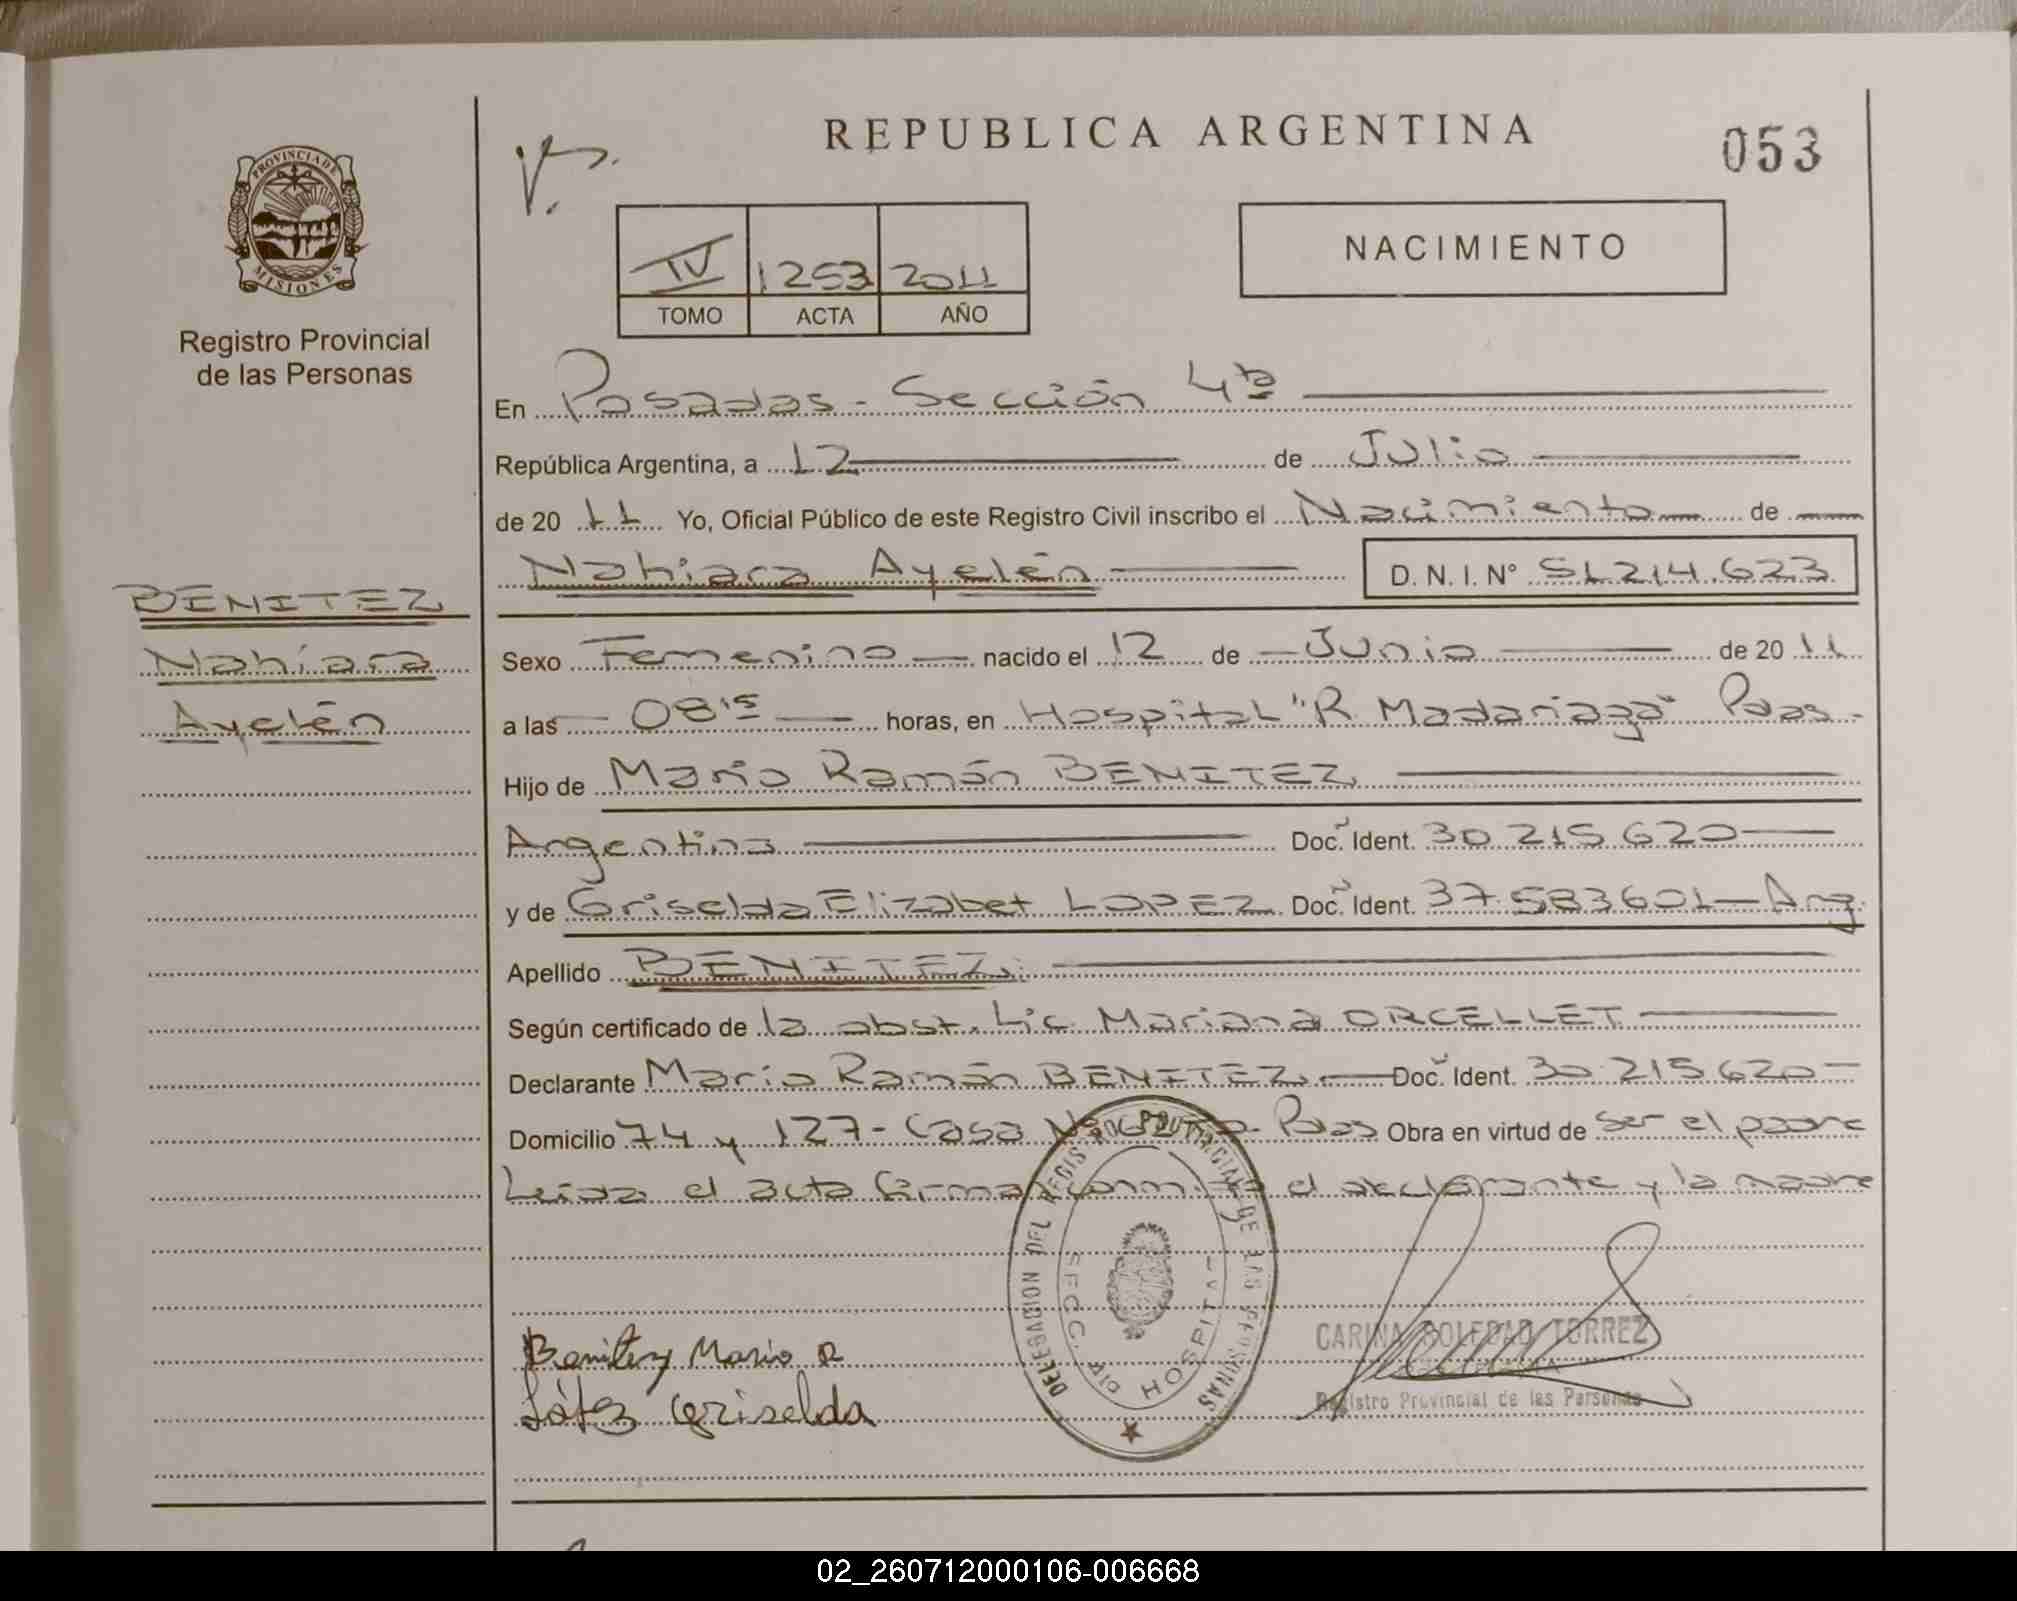 REPUBLICA ARGENTINA
053
PROVINCIA DE
MISIONES
Registro Provincial
de las Personas
NACIMIENTO
IV 1253 2011
TOMO ACTA AÑO
En Posadas - Sección 4ta
República Argentina, a 12 de Julio
de 2011 Yo, Oficial Público de este Registro Civil inscribo el Nacimiento de
Nahiara Ayelén D. N. I. N° 51.214.623
BENITEZ
Nahiara
Ayelén
Sexo Femenino nacido el 12 de Junio de 2011
a las 08'15 horas, en Hospital "R Madariaga" Pdas -
Hijo de Mario Ramón BENITEZ
Argentina Doc. Ident. 30 215 620
y de Griselda Elizabet LOPEZ Doc. Ident. 37.583601 - Arg.
Apellido BENITEZ
Según certificado de la obst. Lic. Mariana ORCELLET
Declarante Mario Ramón BENITEZ Doc. Ident. 30 215 620
Domicilio 74 y 127 - Casa Pdas Obra en virtud de ser el padre
Leída el acta firman conmigo el declarante y la madre
DELEGACION DEL REGISTRO PROVINCIAL DE LAS PERSONAS
SECC. 4ta HOSPITAL
Benitez Mario R
López Griselda
CARINA SOLEDAD TORREZ
Registro Provincial de las Personas
02_260712000106-006668